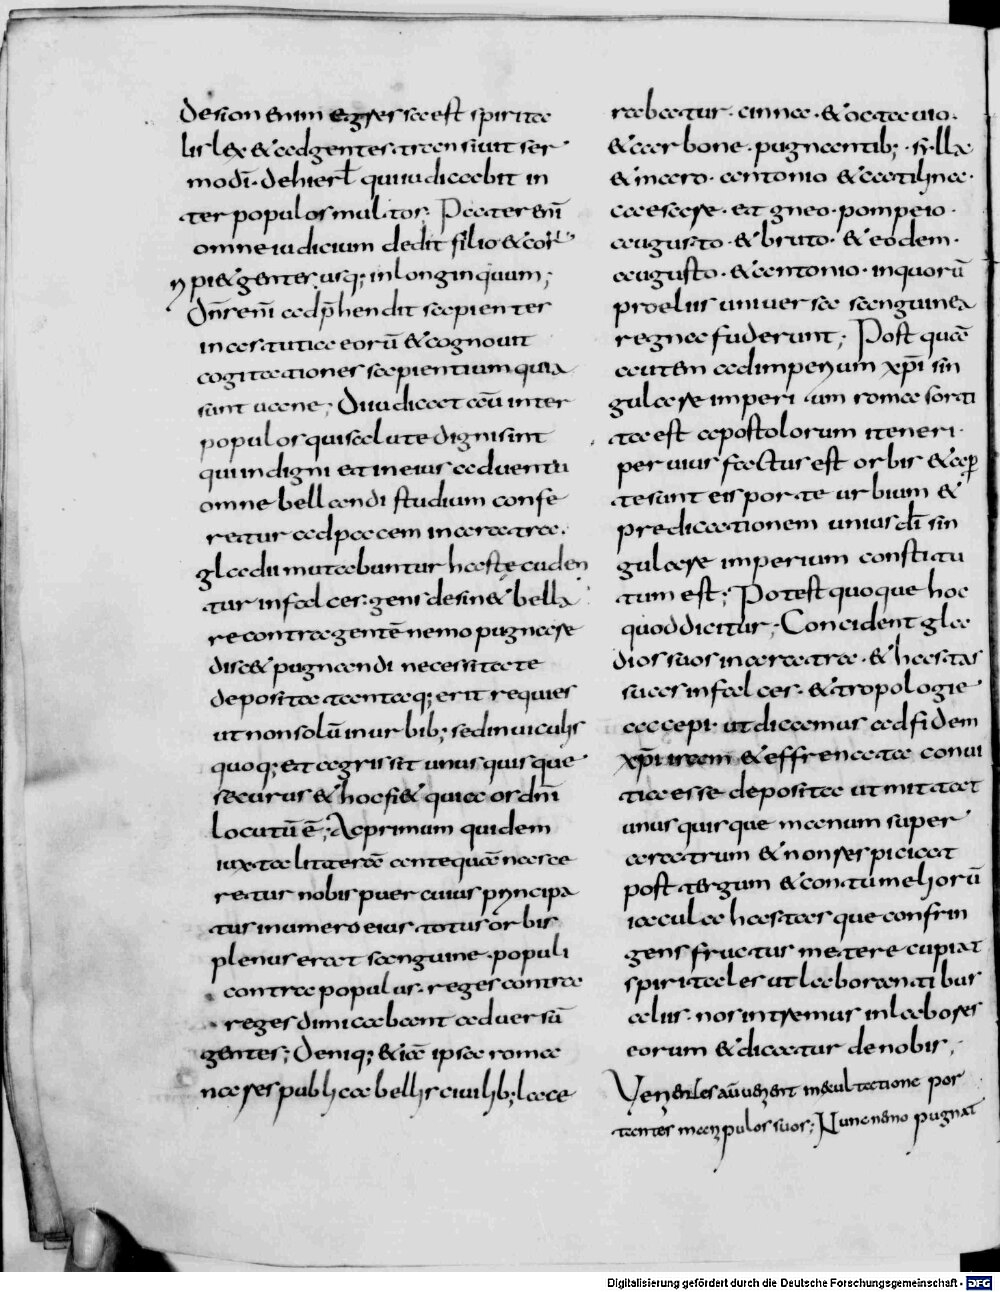 desion enim egressa est spirita
lis lex & ad gentes transiuit ser
modi de hierl qui iudicabit in
ter populos multos; Pater eni
omne iudicium dedit filio &cor
ripi& gentes usq; in longinquum;
Dns eni adp̄hendit sapientes
in astutia eorū & cognouit
cogitationes sapientium quia
sunt uane; Diiudicat eū inter
populos qui salute digni sint
qui indigni et in eius aduentu
omne bellandi studium confe
retur ad pacem in aratra
gladii mutabuntur haste cuden
tur in falces. gens desin& bella
re contra gentē nemo pugnare
disc& pugnandi necessitate
deposita tantaq; erit requies
ut non solū in urbib; sed in uiculis
quoq; et agris sit unusquisque
securus & hoc fi& quia os dn̄i
locutū ē; Ac primum quidem
iuxta litteram antequā nasce
retur nobis puer cuius principa
tus in umero eius totus orbis
plenus erat sanguine. populi
contra populus. reges contra
reges dimicabant aduersū
gentes; Deniq; & iā ipsa romana
na res publica bellis ciuilib; lace
rabatur. cinna. & octauio.
& carbone. pugnantib; sylla
& mario. antonio & catilina.
caesare. et gneo. pompeio.
augusto. & bruto. & eodem.
augusto. & antonio. in quorū
proeliis uniuersa sanguinea
regna fuderunt; Post quā
autem ad imperium xp̄i sin
gulare imperium roma sorti
ta est apostolorum iteneri
peruius factus est orbis & aper
te sunt eis porte urbium &
predicationem unius dī sin
gulare imperium constitu
tum est; Potest quoque hoc
quod dicitur; Concident gla
dios suos in aratra. & hastas
suas in falces. & tropologie
accepi. ut dicamus ad fidem
xp̄i iram & effrenata conui
tia esse deposita ut mittat
unusquisque manum super
aratrum & non respiciat
post tergum & contumeliorū
iacula hastasque confrin
gens fructus metere cupiat
spiritales ut laborantibus
aliis. nos intremus in labores
eorum & dicatur de nobis;
Venientes aū uenient in exultatione por
tantes manipulos suos; Nunc nemo pugnat
Digitalisierung gefördert durch die Deutsche Forschungsgemeinschaft - DFG